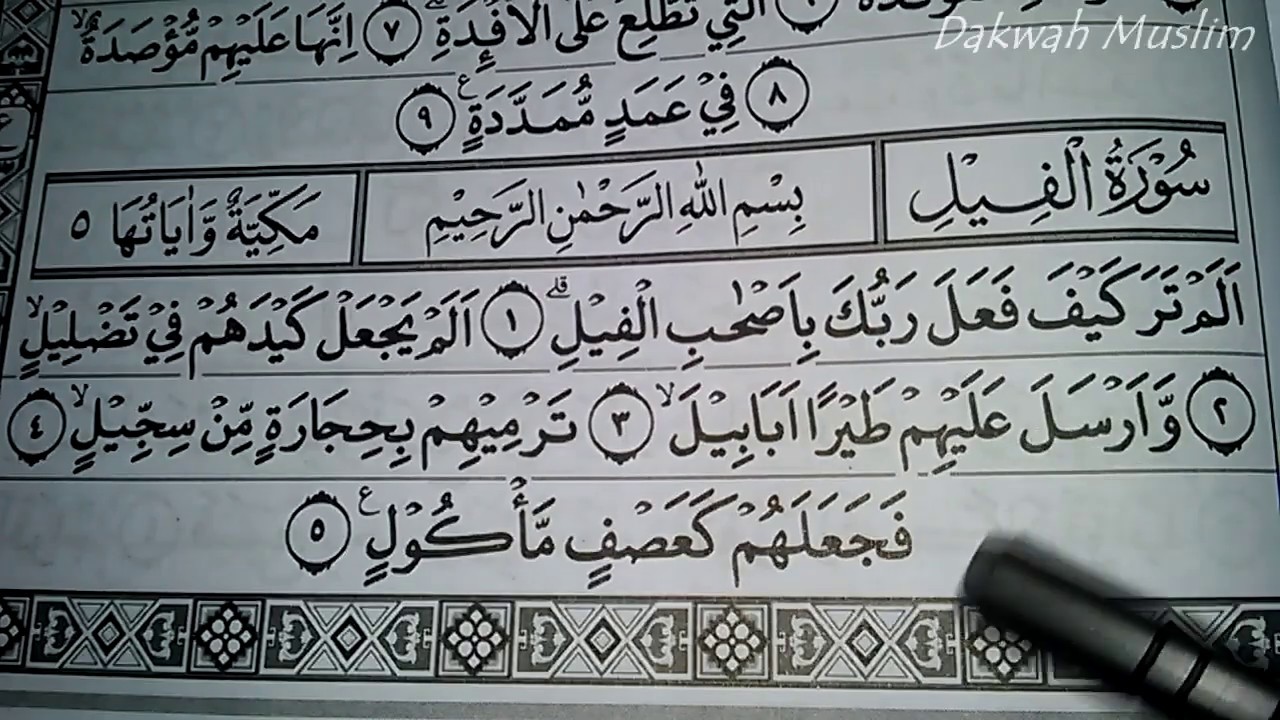 Dakwah Muslim
الَّتِيْ تَطَّلِعُ عَلَى الْاَفْـِٕدَةِۗ ٧ اِنَّهَا عَلَيْهِمْ مُّؤْصَدَةٌۙ
٨ فِيْ عَمَدٍ مُّمَدَّدَةٍࣖ ٩
سُوْرَةُ الْفِيْلِ بِسْمِ اللّٰهِ الرَّحْمٰنِ الرَّحِيْمِ مَكِّيَّةٌ وَّاٰيَاتُهَا ٥
اَلَمْ تَرَ كَيْفَ فَعَلَ رَبُّكَ بِاَصْحٰبِ الْفِيْلِۗ ١ اَلَمْ يَجْعَلْ كَيْدَهُمْ فِيْ تَضْلِيْلٍۙ
٢ وَّاَرْسَلَ عَلَيْهِمْ طَيْرًا اَبَابِيْلَۙ ٣ تَرْمِيْهِمْ بِحِجَارَةٍ مِّنْ سِجِّيْلٍۙ ٤
فَجَعَلَهُمْ كَعَصْفٍ مَّأْكُوْلٍࣖ ٥